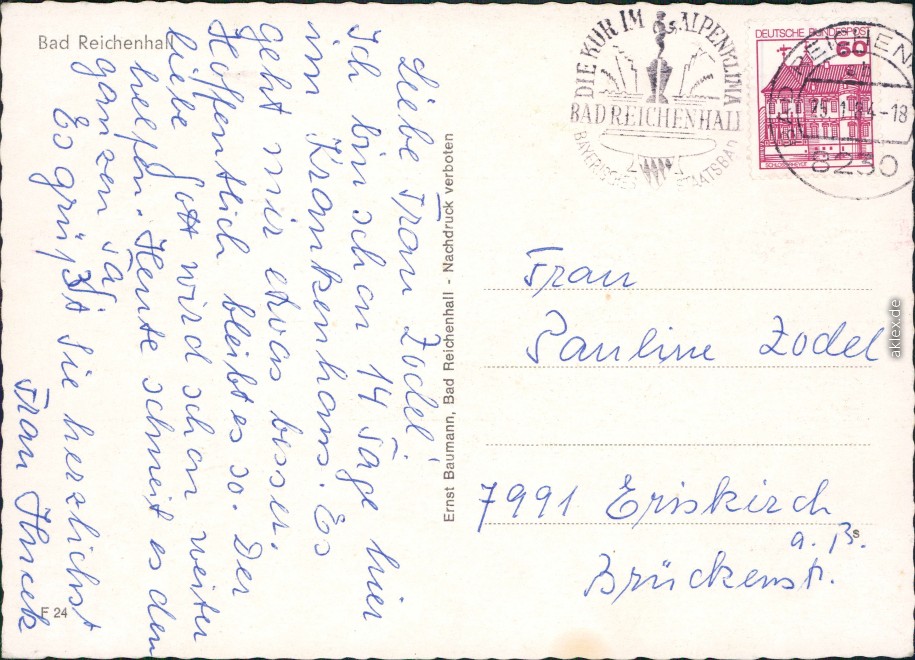 Bad Reichenhall
Liebe Frau Zodel.
Ich bin schon 14 Tage hier
im Krankenhaus. Es
geht mir etwas besser.
Hoffentlich bleibt es so. Der
liebe Gott wird schon weiter
helfen. Heute schneit es den
ganzen Tag.
Es grüßt Sie herzlichst
Frau
F 24
Ernst Baumann, Bad Reichenhall - Nachdruck verboten
DIE KUR IM ALPENKLIMA
BAD REICHENHALL
BAYERISCHES STAATSBAD
DEUTSCHE BUNDESPOST
60
REICHENH
-18
8230
Frau
Pauline Zodel
7991 Eriskirch
a. B.
Brückenstr.
s
aklex.de